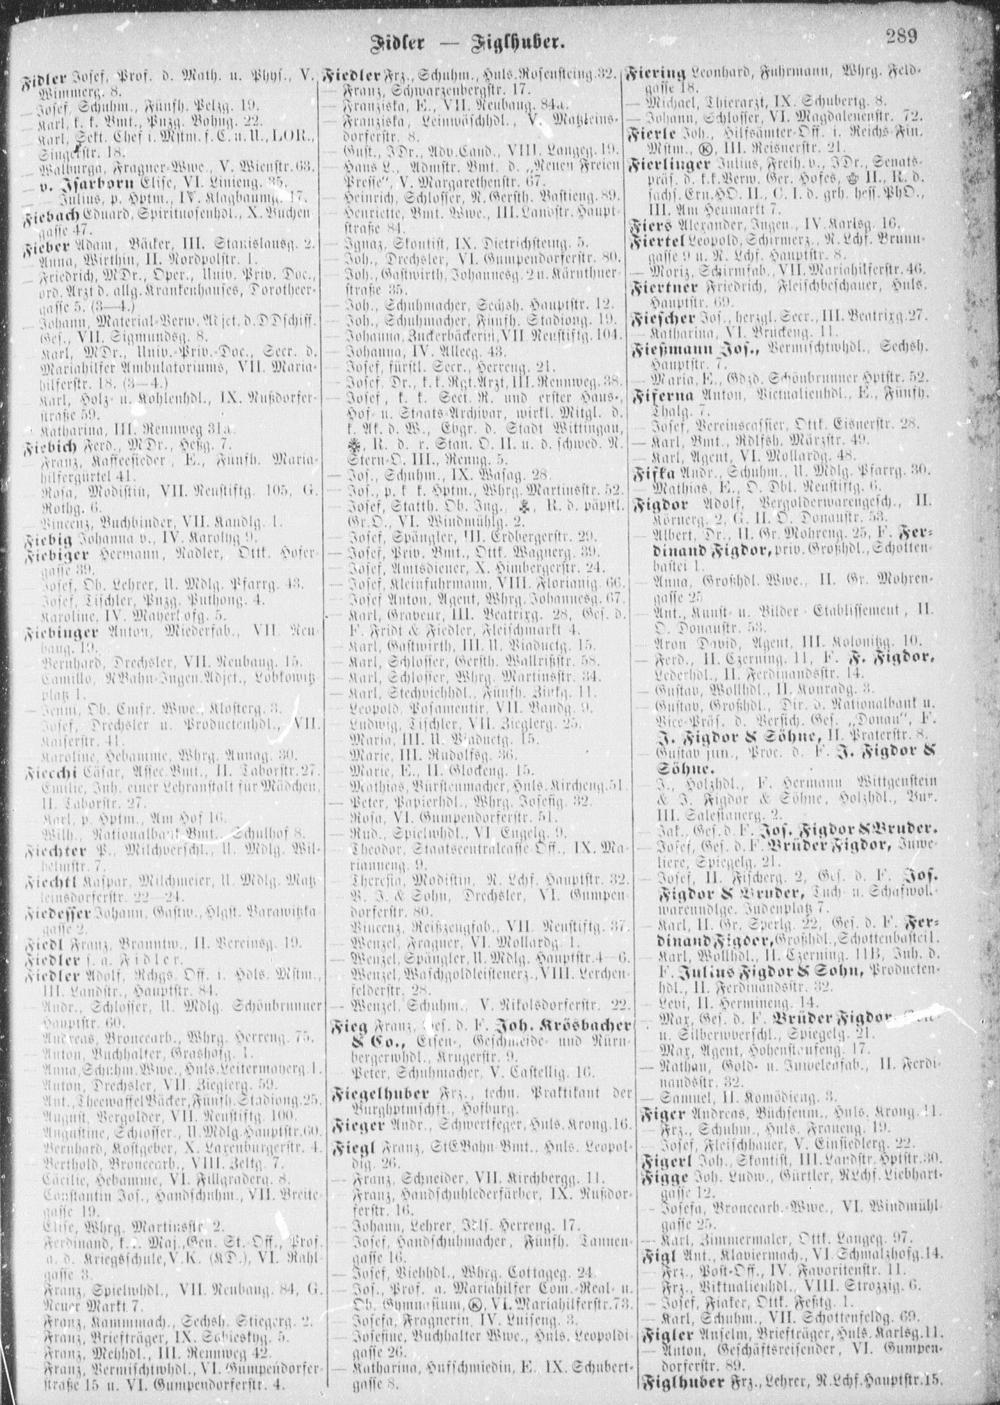 Fidler — Figlhuber.
289
Fidler Josef, Prof. d. Math. u. Phys., V.
Wimmerg. 8.
— Josef, Schuhm., Fünfh. Pelzg. 19.
— Karl, k. k. Bmt., Pnzg. Bohng. 22.
— Karl, Sekt. Chef i. Mstm. f. C. u. U., LOR.,
Singerstr. 18.
— Walburga, Fragner-Wwe., V. Wienstr. 63.
— v. Isarborn Elise, VI. Linieng. 35.
— Julius, p. Hptm., IV. Klagbaumg. 17.
Fiebach Eduard, Spirituosenhdl., X. Buchen
gasse 47.
Fieber Adam, Bäcker, III. Stanislausg. 2.
— Anna, Wirthin, II. Nordpolstr. 1.
— Friedrich, MDr., Oper., Univ. Priv. Doc.,
ord. Arzt d. allg. Krankenhauses, Dorotheer-
gasse 5. (3—4.)
— Johann, Material-Verw. Adjct. d. DDschiff.
Ges., VII. Sigmundsg. 8.
— Karl, MDr., Univ.-Priv.-Doc., Secr. d.
Mariahilfer Ambulatoriums, VII. Maria-
hilferstr. 18. (3—4.)
— Karl, Holz- u. Kohlenhdl., IX. Nußdorfer-
straße 59.
— Katharina, III. Rennweg 31a.
Fiebich Ferd., MDr., Heßg. 7.
— Franz, Kaffeesieder, E., Fünfh. Maria-
hilfergürtel 41.
— Rosa, Modistin, VII. Neustiftg. 105, G.
Rothg. 6.
— Vincenz, Buchbinder, VII. Kandlg. 1.
Fiebig Johanna v., IV. Karolng. 9.
Fiebiger Hermann, Nadler, Ottk. Hofer-
gasse 39.
— Josef, Ob. Lehrer, U. Mdlg. Pfarrg. 43.
— Josef, Tischler, Pnzg. Puthong. 4.
— Karoline, IV. Mayerhofg. 5.
Fiebinger Anton, Miederfab., VII. Neu-
baug. 19.
— Bernhard, Drechsler, VII. Neubaug. 15.
— Camillo, NBahn-Ingen. Adjct., Lobkowitz
platz 1.
— Jenni, Ob. Cmsr. Wwe., Klosterg. 3.
— Josef, Drechsler u. Productenhdl., VII.
Kaiserstr. 41.
— Karoline, Hebamme, Whrg. Annag. 30.
Fiecchi Cäsar, Assec. Bmt., II. Taborstr. 27.
— Emilie, Inh. einer Lehranstalt für Mädchen,
II. Taborstr. 27.
— Karl, p. Hptm., Am Hof 16.
— Wilh., Nationalbank-Bmt., Schulhof 8.
Fiechter P., Milchverschl., U. Mdlg. Wil-
helmstr. 7.
Fiechtl Kaspar, Milchmeier, U. Mdlg. Matz
leinsdorferstr. 22—24.
Fiedesser Johann, Gastw., Hlgst. Barawitzka
gasse 2.
Fiedl Franz, Branntw., II. Vereinsg. 19.
Fiedler s. a. Fidler.
Fiedler Adolf, Rchgs. Off. i. Hdls. Mstm.,
III. Landstr., Hauptstr. 84.
— Andr., Schlosser, U. Mdlg. Schönbrunner
Hauptstr. 60.
— Andreas, Broncearb., Whrg. Herreng. 75.
— Anton, Buchhalter, Grashofg. 1.
— Anna, Schuhm. Wwe., Huls. Leitermayerg. 1.
— Anton, Drechsler, VII. Zieglerg. 59.
— Ant., Theewaffel Bäcker, Fünfh. Stadiong. 25.
— August, Vergolder, VII. Neustiftg. 100.
— Augustine, Schlosser., U. Mdlg. Hauptstr. 60.
— Bernhard, Kostgeber, X. Laxenburgerstr. 4.
— Berthold, Broncearb., VIII. Zeltg. 7.
— Cäcilie, Hebamme, VI. Fillgraderg. 8.
— Constantin Jos., Handschuhm., VII. Breite-
gasse 19.
— Elise, Whrg. Martinsstr. 2.
— Ferdinand, k. Maj. Gen. St.-Off., Prof.
a. d. Kriegsschule, V.K. (KD.), VI. Rahl-
gasse 3.
— Franz, Spielwhdl., VII. Neubaug. 84, G.
Neuer Markt 7.
— Franz, Kammmach., Sechsh. Stiegerg. 2.
— Franz, Briefträger, IX. Sobieskyg. 5.
— Franz, Mehlhdl., III. Rennweg 42.
— Franz, Vermischtwhdl., VI. Gumpendorfer-
straße 15 u. VI. Gumpendorferstr. 4.
Fiedler Frz., Schuhm., Huls. Rosensteing. 32.
— Franz, Schwarzenbergstr. 17.
— Franziska, E., VII. Neubaug. 84a.
— Franziska, Leinwäschhdl., V. Matzleins-
dorferstr. 8.
— Gust., JDr., Adv. Cand., VIII. Langeg. 19.
— Hans L., Admstr. Bmt. d. „Neuen Freien
Presse“, V. Margarethenstr. 67.
— Heinrich, Schlosser, N. Gersth. Bastieng. 89.
— Henriette, Bmt. Wwe., III. Landstr. Haupt-
straße 84.
— Ignaz, Skontist, IX. Dietrichsteing. 5.
— Joh., Drechsler, VI. Gumpendorferstr. 80.
— Joh., Gastwirth, Johannesg. 2 u. Kärnthner-
straße 35.
— Joh., Schuhmacher, Sechsh. Hauptstr. 12.
— Joh., Schuhmacher, Fünfh. Stadiong. 19.
— Johanna, Zuckerbäckerin, VII. Neustiftg. 104.
— Johanna, IV. Alleeg. 43.
— Josef, fürstl. Secr., Herreng. 21.
— Josef, Dr., k. k. Rgt. Arzt, III. Rennweg. 38.
— Josef, k. k. Secl. R. und erster Haus-,
Hof- u. Staats-Archivar, wirkl. Mitgl. d.
k. Ak. d. W., Ebgr. d. Stadt Wittingau,
R. d. r. Stan. O. II. u. d. schwed. N.
Stern-O. III., Renng. 5.
— Jos., Schuhm., IX. Wasag. 28.
— Jos., p. k. k. Hptm., Whrg. Martinsstr. 52.
— Josef, Statth. Ob. Ing., R. d. päpstl.
Gr. O., VI. Windmühlg. 2.
— Josef, Spängler, III. Erdbergerstr. 29.
— Josef, Priv. Bmt., Ottk. Wagnerg. 39.
— Josef, Amtsdiener, X. Himbergerstr. 24.
— Josef, Kleinfuhrmann, VIII. Florianig. 66.
— Josef Anton, Agent, Whrg. Johannesg. 67.
— Karl, Graveur, III. Beatrixg. 28, Ges. d.
F. Fridt & Fiedler, Fleischmarkt 4.
— Karl, Gastwirth, III. U. Viaductg. 15.
— Karl, Schlosser, Gersth. Wallrißstr. 58.
— Karl, Schlosser, Whrg. Martinsstr. 34.
— Karl, Stechviehhdl., Fünfh. Zirkg. 11.
— Leopold, Posamentir, VII. Bandg. 9.
— Ludwig, Tischler, VII. Zieglerg. 25.
— Maria, III. U. Viaductg. 15.
— Marie, III. Rudolfsg. 36.
— Marie, E., II. Glockeng. 15.
— Mathias, Bürstenmacher, Huls. Kircheng. 51.
— Peter, Papierhdl., Whrg. Josefig. 32.
— Rosa, VI. Gumpendorferstr. 51.
— Rud., Spielwhdl., VI. Engelg. 9.
— Theodor, Staatscentralcasse Off., IX. Ma-
rianneng. 9.
— Theresia, Modistin, N. Lchf. Hauptstr. 32.
— V. J. & Sohn, Drechsler, VI. Gumpen-
dorferstr. 80.
— Vincenz, Reißzeugfab., VII. Neustiftg. 37.
— Wenzel, Fragner, VI. Mollardg. 1.
— Wenzel, Spängler, U. Mdlg. Hauptstr. 4—6.
— Wenzel, Waschgoldleistenerz., VIII. Lerchen-
felderstr. 28.
— Wenzel, Schuhm., V. Nikolsdorferstr. 22.
Fieg Franz, Ges. d. F. Joh. Krösbacher
& Co., Eisen-, Geschmeide- und Nürn-
bergerwhdl., Krugerstr. 9.
— Peter, Schuhmacher, V. Castellig. 16.
Fiegelhuber Frz., techn. Praktikant der
Burghptmschft., Hofburg.
Fieger Andr., Schwertfeger, Huls. Krong. 16.
Fiegl Franz, StEBahn-Bmt., Huls. Leopol-
dig. 26.
— Franz, Schneider, VII. Kirchbergg. 11.
— Franz, Handschuhlederfärber, IX. Nußdor-
ferstr. 16.
— Johann, Lehrer, Huls. Herreng. 17.
— Josef, Handschuhmacher, Fünfh. Tannen-
gasse 16.
— Josef, Viehhdl., Whrg. Cottageg. 24.
— Jos., Prof. a. Mariahilfer Com.-Real- u.
Ob. Gymnasium, Ⓚ, VI. Mariahilferstr. 73.
— Josefa, Fragnerin, IV. Luiseng. 3.
— Josefine, Buchhalter Wwe., Huls. Leopoldi-
gasse 26.
— Katharina, Hufschmiedin, E. IX. Schubert-
gasse 8.
Fiering Leonhard, Fuhrmann, Whrg. Feld-
gasse 18.
— Michael, Thierarzt, IX. Schubertg. 8.
— Johann, Schlosser, VI. Magdalenenstr. 72.
Fierle Joh., Hilfsämter-Off. i. Reichs-Fin.
Mstm., Ⓚ, III. Reisnerstr. 21.
Fierlinger Julius, Freih. v., JDr., Senats-
präs. d. k.k. Verw. Ger. Hofes, II., R. d.
sächs. Ern. HO. II., C. I. d. grh. hess. PhO.,
III. Am Heumarkt 7.
Fiers Alexander, Ingen., IV. Karlsg. 16.
Fiertel Leopold, Schirmerz., N. Lchf. Brunn-
gasse 9 u. N. Lchf. Hauptstr. 8.
— Moriz, Schirmfab., VII. Mariahilferstr. 46.
Fiertner Friedrich, Fleischbeschauer, Huls.
Hauptstr. 69.
Fiescher Jos., herzgl. Secr., III. Beatrixg. 27.
— Katharina, VI. Brückeng. 11.
Fießmann Jos., Vermischtwhdl., Sechsh.
Hauptstr. 7.
— Maria, E., Gdzd. Schönbrunner Hptstr. 52.
Fiferna Anton, Victualienhdl., E., Fünfh.
Thalg. 7.
— Josef, Vereinscassier, Ottk. Eisnerstr. 28.
— Karl, Bmt., Rdlfsh. Märzstr. 49.
— Karl, Agent, VI. Mollardg. 48.
Fifka Andr., Schuhm., U. Mdlg. Pfarrg. 30.
— Mathias, E., O. Dbl. Neustiftg. 6.
Figdor Adolf, Vergolderwarengesch., II.
Körnerg. 2, G. II. O. Donaustr. 53.
— Albert, Dr., II. Gr. Mohreng. 25, F. Fer-
dinand Figdor, priv. Großhdl., Schotten-
bastei 1.
— Anna, Großhdl. Wwe., II. Gr. Mohren-
gasse 25.
— Ant., Kunst- u. Bilder-Etablissement, II.
O. Donaustr. 53.
— Aron David, Agent, III. Kolonitzg. 10.
— Ferd., II. Czerning. 11, F. F. Figdor,
Lederhdl., II. Ferdinandsstr. 14.
— Gustav, Wollhdl., II. Konradg. 3.
— Gustav, Großhdl., Dir. d. Nationalbank u.
Vice-Präs. d. Versich. Ges. „Donau“, F.
J. Figdor & Söhne, II. Praterstr. 8.
— Gustav jun., Proc. d. F. J. Figdor &
Söhne.
— J., Holzhdl., F. Hermann Wittgenstein
& J. Figdor & Söhne, Holzhdl., Bur.
III. Salesianerg. 2.
— Jak., Ges. d. F. Jos. Figdor & Bruder.
— Josef, Ges. d. F. Brüder Figdor, Juwe-
liere, Spiegelg. 21.
— Josef, II. Fischerg. 2, Ges. d. F. Jos.
Figdor & Bruder, Tuch- u. Schafwoll-
warenndlge. Judenplatz 7.
— Karl, II. Gr. Sperlg. 22, Ges. d. F. Fer-
dinand Figdor, Großhdl., Schottenbastei 1.
— Karl, Wollhdl., II. Czerning. 11B, Inh. d.
F. Julius Figdor & Sohn, Producten-
hdl., II. Ferdinandsstr. 32.
— Levi, II. Hermineng. 14.
— Max, Ges. d. F. Brüder Figdor,
u. Silberwverschl., Spiegelg. 21.
— Max, Agent, Hohenstaufeng. 17.
— Nathan, Gold- u. Juwelenfab., II. Ferdi-
nandsstr. 32.
— Samuel, II. Komödieng. 3.
Figer Andreas, Büchsenm., Huls. Krong. 11.
— Frz., Schuhm., Huls. Fraueng. 19.
— Josef, Fleischhauer, V. Einsiedlerg. 22.
Figerl Joh., Skontist, III. Landstr. Hptstr. 30.
Figge Joh. Ludw., Gürtler, N. Lchf. Liebhart-
gasse 12.
— Josefa, Broncearb.-Wwe., VI. Windmühl-
gasse 25.
— Karl, Zimmermaler, Ottk. Langeg. 97.
Figl Ant., Klaviermach., VI. Schmalzhofg. 14.
— Frz., Post-Off., IV. Favoritenstr. 11.
— Frz., Viktualienhdl., VIII. Strozzig. 6.
— Josef, Fiaker, Ottk. Festg. 1.
— Karl, Schuhm., VII. Schottenfeldg. 69.
Figler Anselm, Briefträger, Huls. Karlsg. 11.
— Anton, Geschäftsreisender, VI. Gumpen-
dorferstr. 89.
Figlhuber Frz., Lehrer, N. Lchf. Hauptstr. 15.